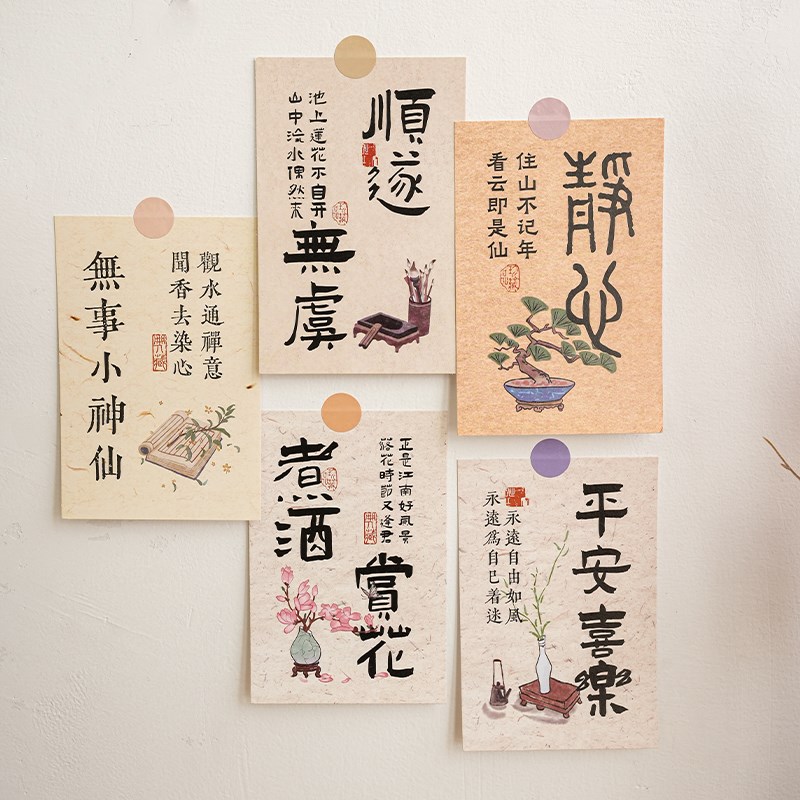 觀水通禪意
聞香去染心
無事小神仙
順遂
無虞
池上蓮花不自开
山中流水偶然来
靜心
住山不记年
看云即是仙
煮酒
賞花
正是江南好風景
落花時節又逢君
平安喜樂
永遠自由如風
永遠爲自己着迷